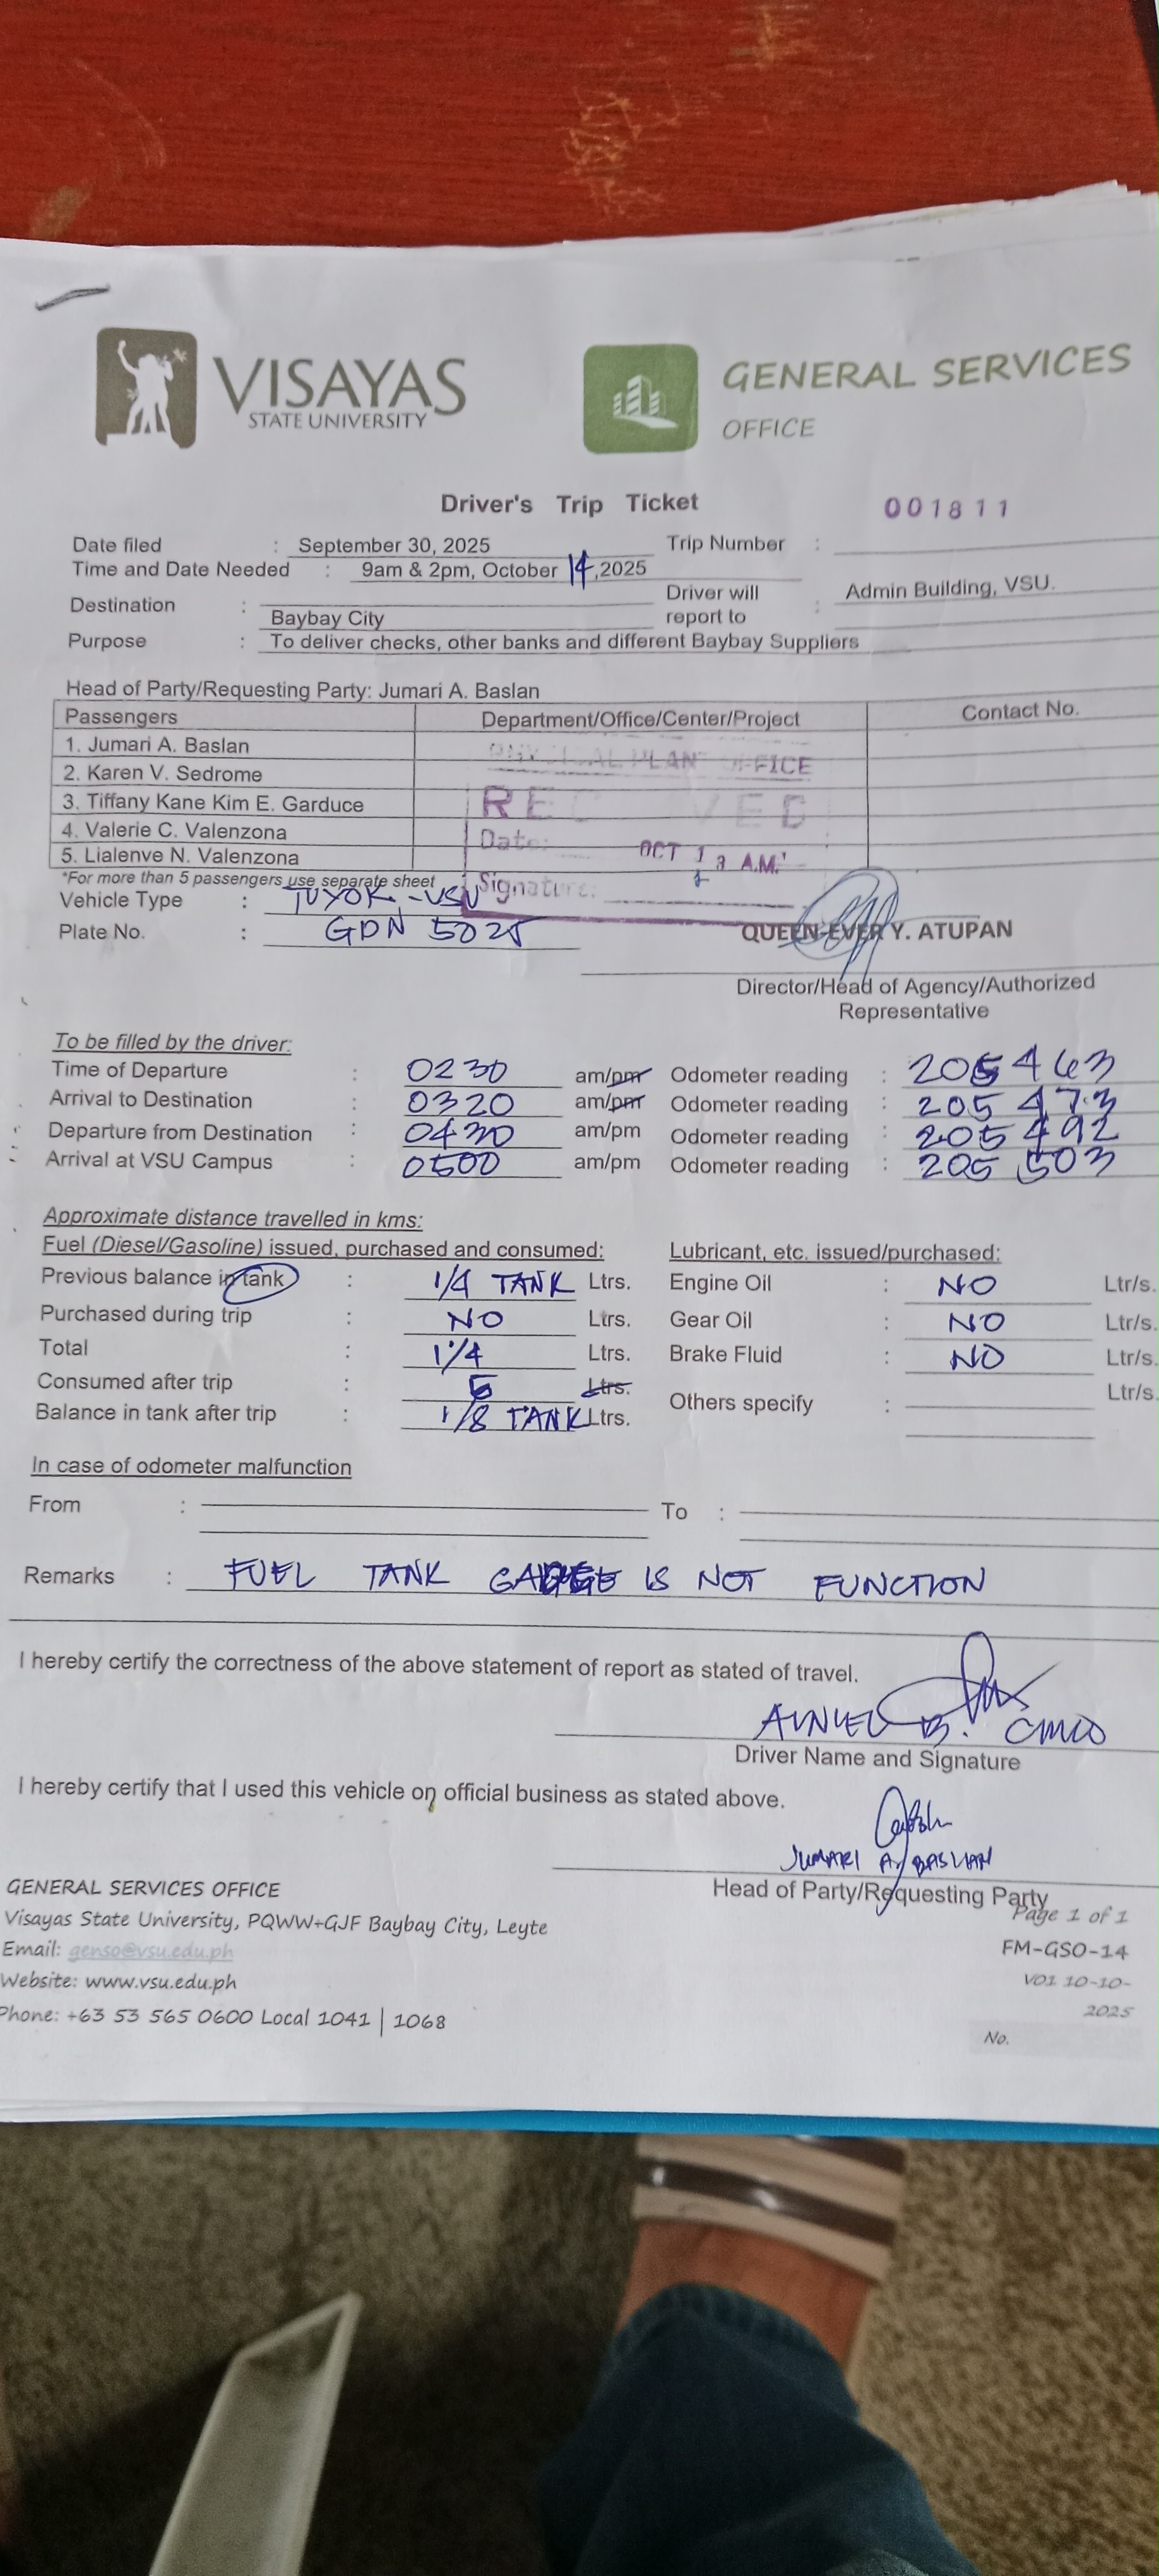 VISAYAS
STATE UNIVERSITY
GENERAL SERVICES
OFFICE
Driver's Trip Ticket
001811
Date filed : September 30, 2025 Trip Number :
Time and Date Needed : 9am & 2pm, October 14, 2025
Destination : Baybay City Driver will report to : Admin Building, VSU.
Purpose : To deliver checks, other banks and different Baybay Suppliers
Head of Party/Requesting Party: Jumari A. Baslan
Passengers Department/Office/Center/Project Contact No.
1. Jumari A. Baslan
2. Karen V. Sedrome
3. Tiffany Kane Kim E. Garduce
4. Valerie C. Valenzona
5. Lialenve N. Valenzona
PHYSICAL PLANT OFFICE
RECEIVED
Date: OCT 13 A.M.
Signature:
*For more than 5 passengers use separate sheet
Vehicle Type : TUYOK-VSU
Plate No. : GDN 5025
QUEEN-EVER Y. ATUPAN
Director/Head of Agency/Authorized
Representative
To be filled by the driver:
Time of Departure : 0230 am/pm Odometer reading : 205463
Arrival to Destination : 0320 am/pm Odometer reading : 205473
Departure from Destination : 0430 am/pm Odometer reading : 205492
Arrival at VSU Campus : 0500 am/pm Odometer reading : 205503
Approximate distance travelled in kms:
Fuel (Diesel/Gasoline) issued, purchased and consumed: Lubricant, etc. issued/purchased:
Previous balance in tank : 1/4 TANK Ltrs. Engine Oil : NO Ltr/s.
Purchased during trip : NO Ltrs. Gear Oil : NO Ltr/s.
Total : 1/4 Ltrs. Brake Fluid : NO Ltr/s.
Consumed after trip : 5 Ltrs. Others specify : Ltr/s.
Balance in tank after trip : 1/8 TANK Ltrs.
In case of odometer malfunction
From : To :
Remarks : FUEL TANK IS NOT FUNCTION
I hereby certify the correctness of the above statement of report as stated of travel.
B.
Driver Name and Signature
I hereby certify that I used this vehicle on official business as stated above.
JUMARI A. BASLAN
Head of Party/Requesting Party
GENERAL SERVICES OFFICE
Visayas State University, PQWW+GJF Baybay City, Leyte
Email: genso@vsu.edu.ph
Website: www.vsu.edu.ph
Phone: +63 53 565 0600 Local 1041 | 1068
Page 1 of 1
FM-GSO-14
V01 10-10-
2025
No.